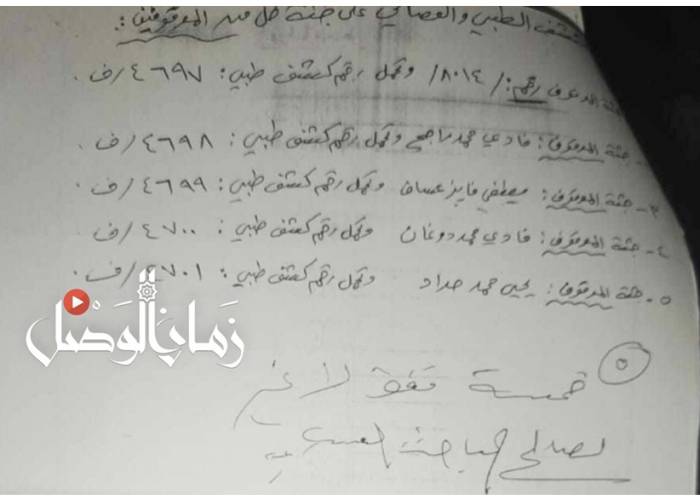 الطبي والقضائي على جثة كل من الموقوفين:
رقم: /٨٠١٤/ وتحمل رقم كشف طبي: ٤٦٩٧/ف.
جثة الموقوف: فادي محمد وتحمل رقم كشف طبي: ٤٦٩٨/ف.
٣- جثة الموقوف: مصطفى فايز عساف وتحمل رقم كشف طبي: ٤٦٩٩/ف.
٤- جثة الموقوف: فادي محمد دوغان وتحمل رقم كشف طبي: ٤٧٠٠/ف.
٥- جثة الموقوف: يحيى حمد حداد وتحمل رقم كشف طبي: ٤٧٠١/ف.
زمان الوصل
٥ خمسة فقط لا غير
لصالح